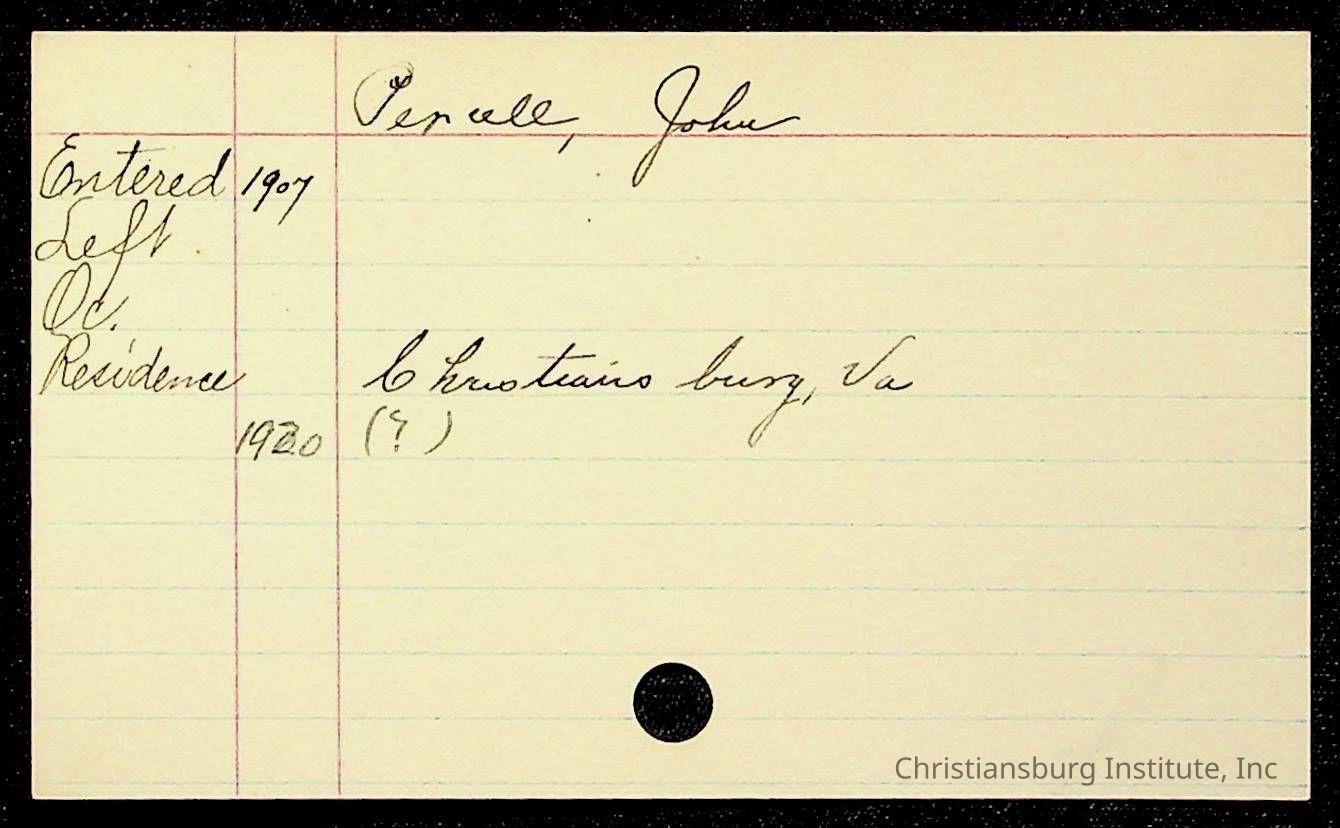 Percell, John
Entered 1907
Left
Oc.
Residence Christiansburg, Va
1920 (?)
Christiansburg Institute, Inc